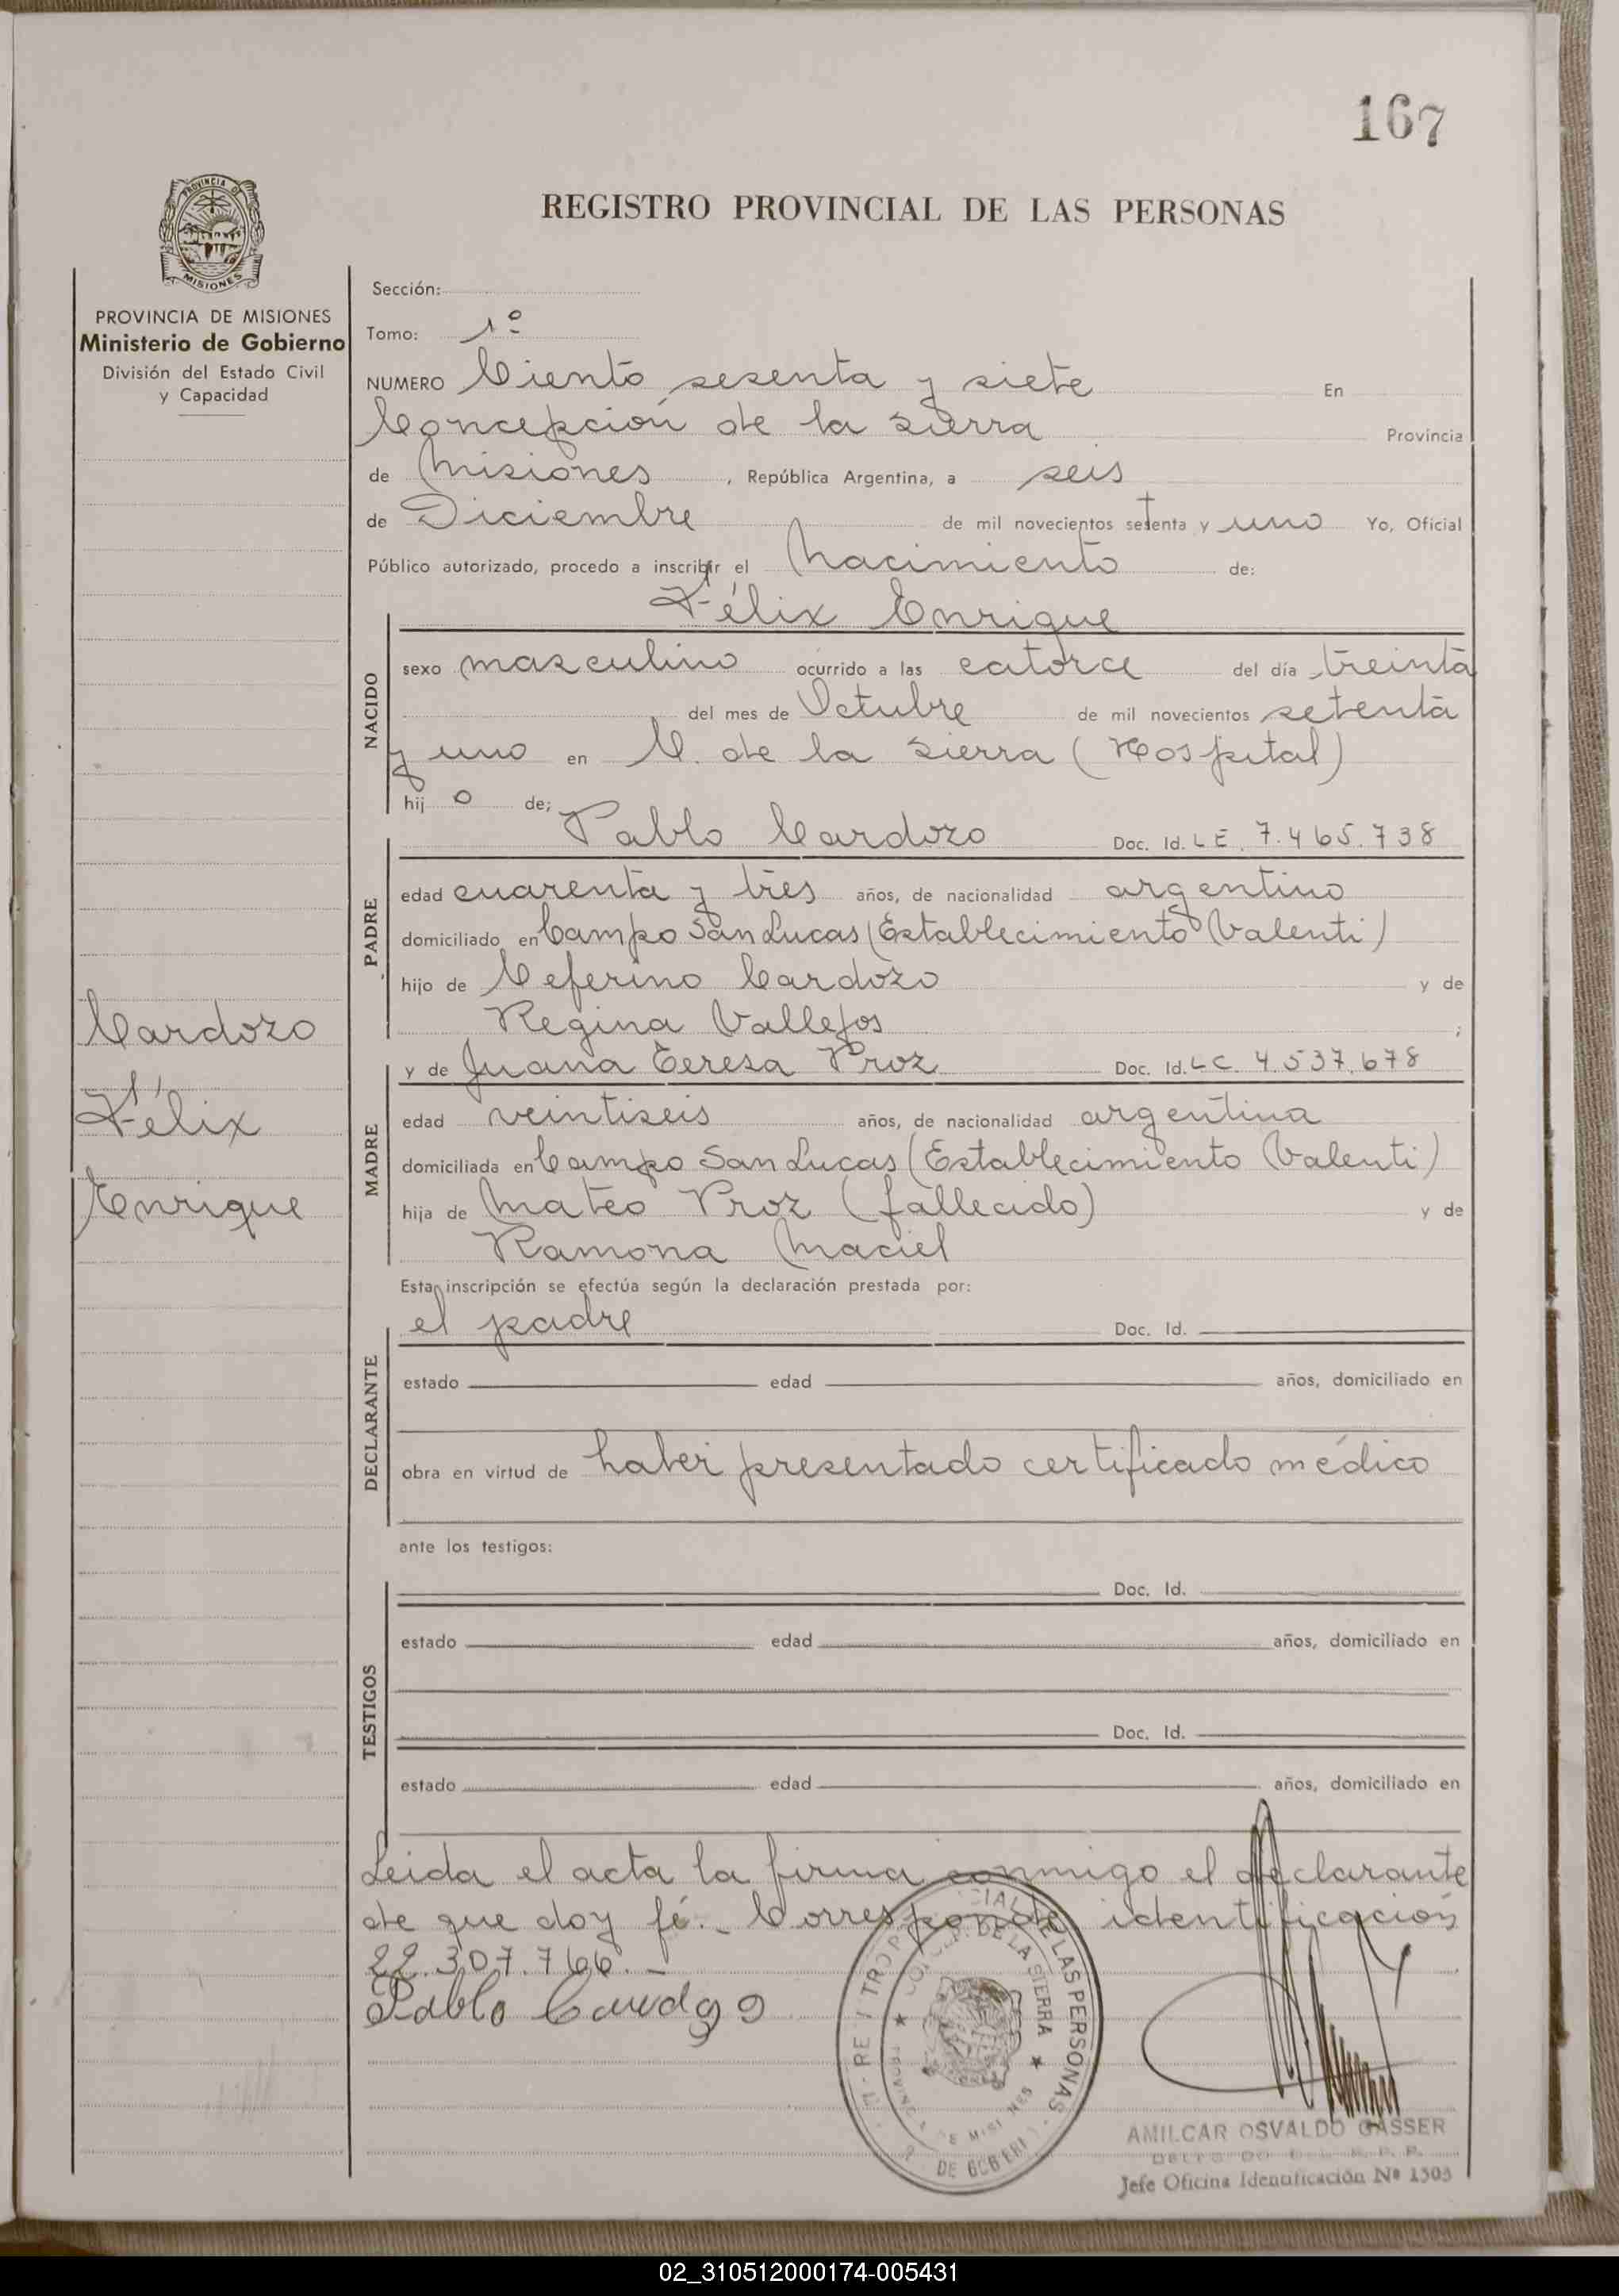 167
REGISTRO PROVINCIAL DE LAS PERSONAS
PROVINCIA
MISIONES
PROVINCIA DE MISIONES
Ministerio de Gobierno
División del Estado Civil
y Capacidad
Cardozo
Félix
Enrique
Sección:
Tomo: 1º
NUMERO Ciento sesenta y siete En
Concepción de la Sierra Provincia
de Misiones, República Argentina, a seis
de Diciembre de mil novecientos setenta y uno Yo, Oficial
Público autorizado, procedo a inscribir el Nacimiento de:
Félix Enrique
NACIDO
sexo masculino ocurrido a las catorce del día treinta
del mes de Octubre de mil novecientos setenta
y uno en C. de la Sierra (Hospital)
hijo de;
Pablo Cardozo Doc. Id. LE. 7.465.738
PADRE
edad cuarenta y tres años, de nacionalidad argentino
domiciliado en Campo San Lucas (Establecimiento Valenti)
hijo de Ceferino Cardozo y de
Regina Vallejos ;
y de Juana Teresa Proz Doc. Id. LC. 4.537.678
MADRE
edad veintiseis años, de nacionalidad argentina
domiciliada en Campo San Lucas (Establecimiento Valenti)
hija de Mateo Proz (fallecido) y de
Ramona Maciel
Esta inscripción se efectúa según la declaración prestada por:
el padre Doc. Id.
DECLARANTE
estado edad años, domiciliado en
obra en virtud de haber presentado certificado médico
ante los testigos:
Doc. Id.
TESTIGOS
estado edad años, domiciliado en
Doc. Id.
estado edad años, domiciliado en
Leida el acta la firma conmigo el declarante
de que doy fé._ Corresponde identificación
22.307.766._
Pablo Cardozo
DE LAS PERSONAS
DE LA SIERRA
AMILCAR OSVALDO GASSER
Jefe Oficina Identificación Nº 1303
02_310512000174-005431